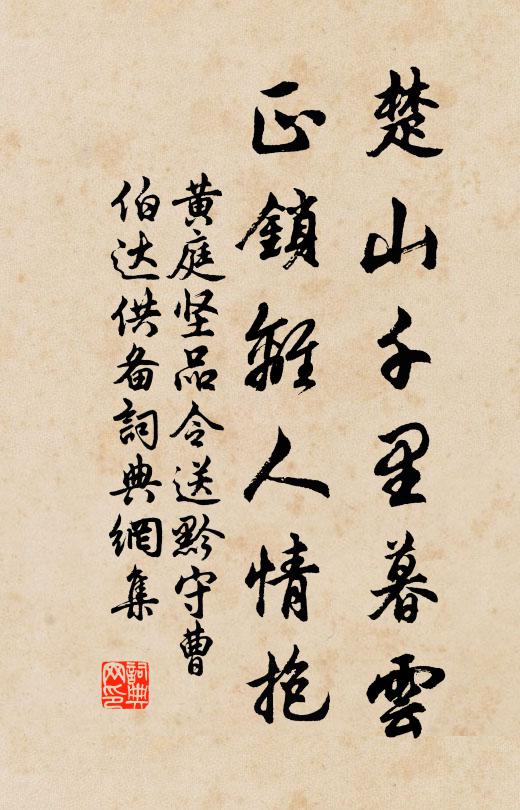 楚山千里暮雲
正鎖離人情抱
黄庭坚品令送黔守曹
伯达供备詞典網集
詞典网印